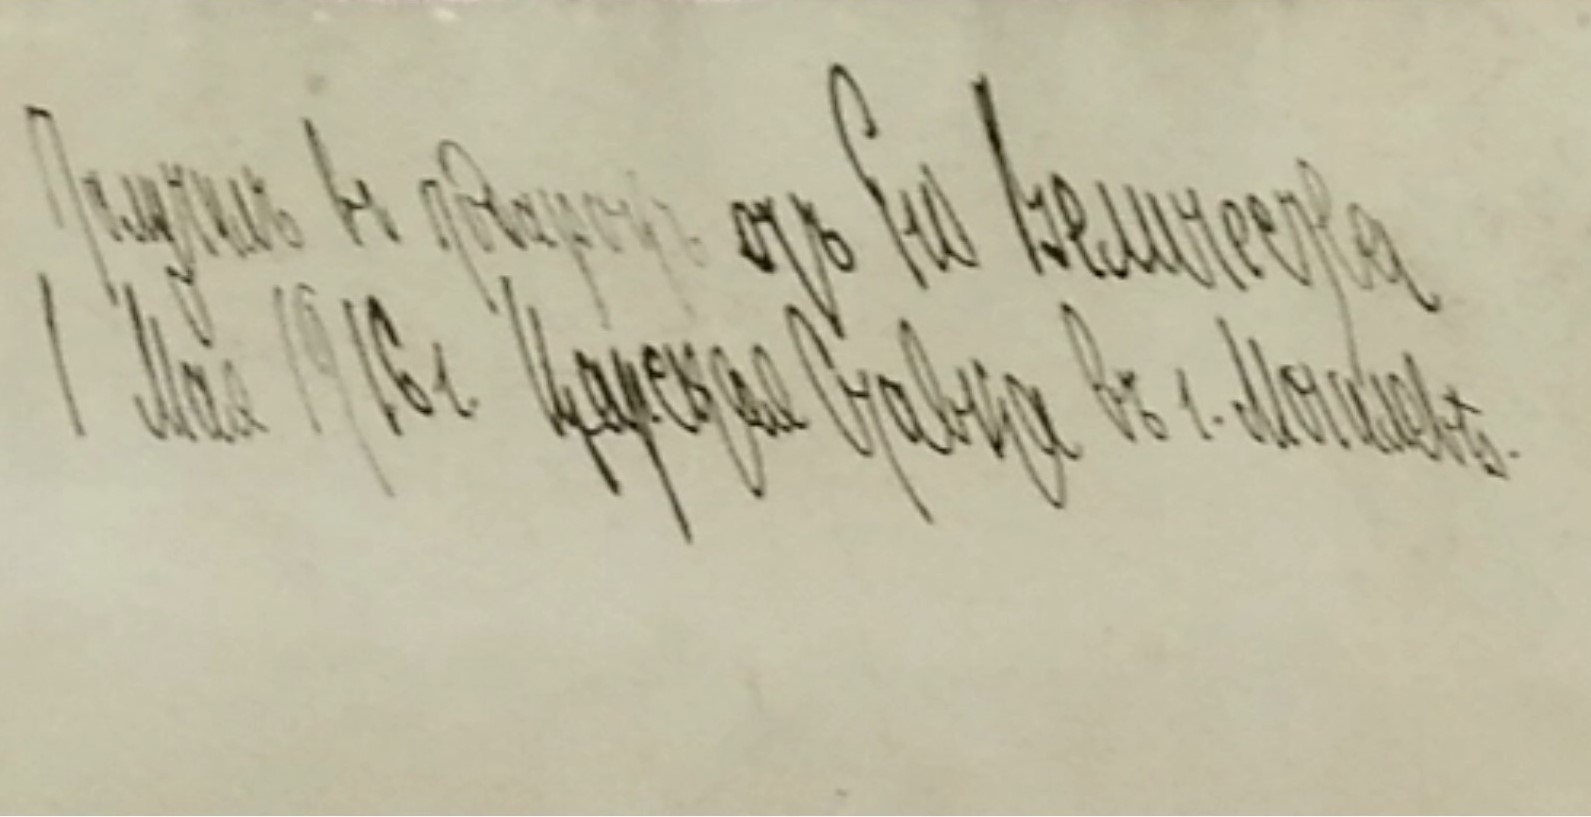 Получилъ въ подарокъ отъ Его Величества
1 Мая 1916 г. Царская Ставка въ г. Могилевѣ.